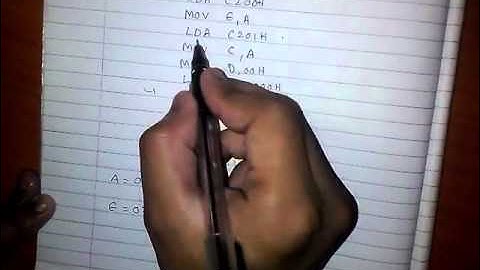 LDA C200H
MOV E,A
LDA C201H
C,A
D,00H
00H
4
A=0
E=0